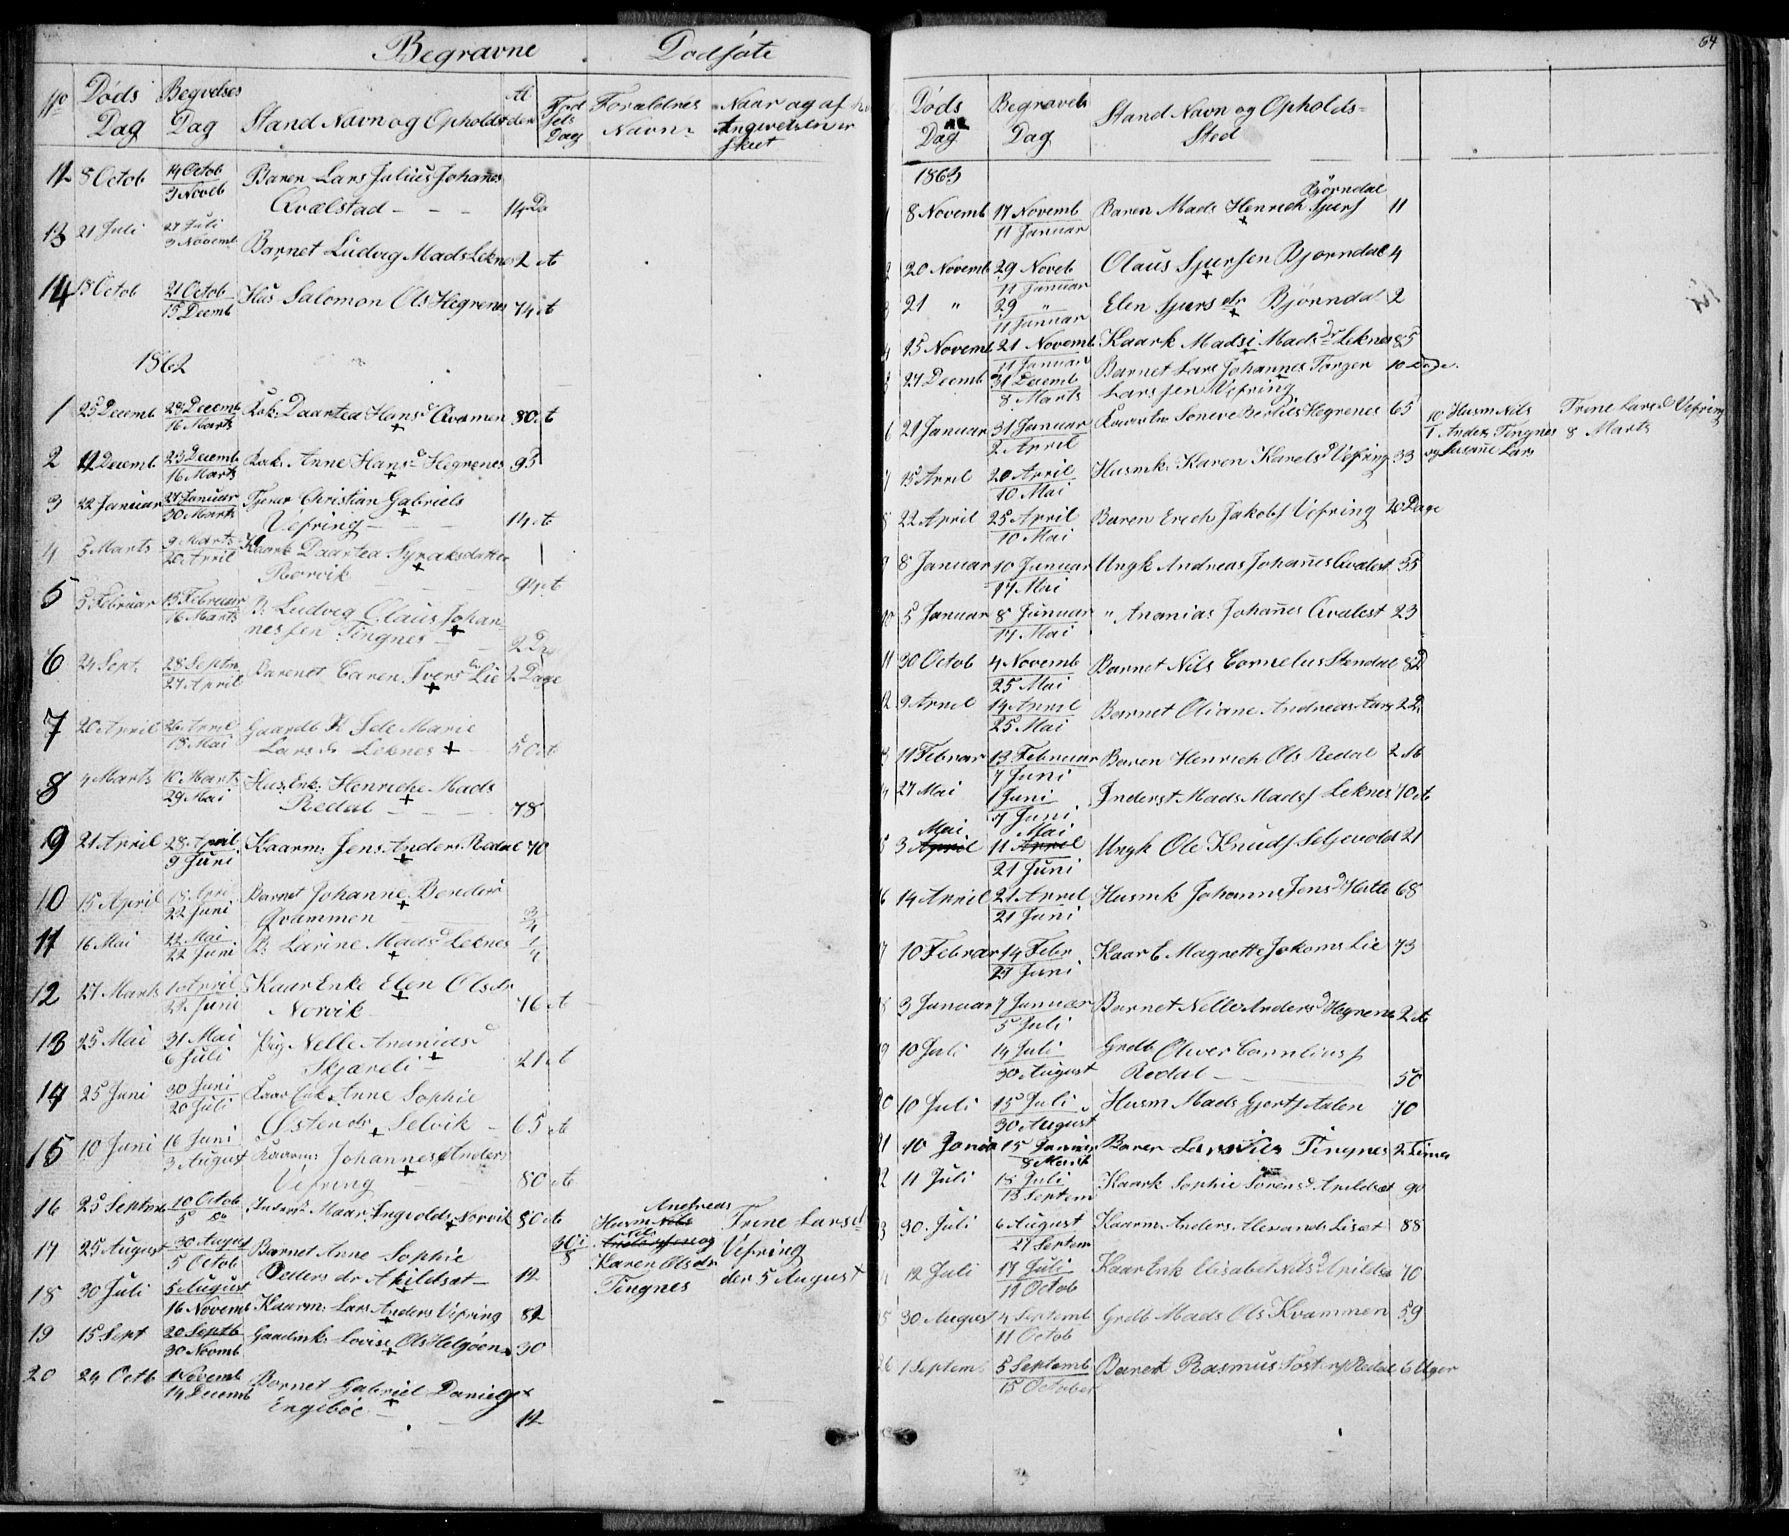 Begravne Dodføte
No Døds Dag Begvelses Dag Stand Navn og Opholds Al der Fød Dag Forældres Navn Naar og af Angivelsen er skeet
12 8 Octob 14 Octob Baren Lars Julius Johanes
3 Noveb Qvælstad - - - 14 Da
13 21 Juli 27 Juli
3 Novemb Barnet Ludvig Mads Leknes 2 At
14 18 Octob 21 Octob Hus Salomon Ols Hegrenes 74 At
15 Decemb
1862
1 25 Decemb 28 Decemb Kok: Daartea Hans d Qvamen 80 At
16 Marts
2 12 Decemb 23 Decemb Kok. Anne Hans d Hegrenes 95
16 Marts
3 22 Januar 27 Januar Tjener Christian Gabriels
30 Marts Vefring - - - 14 At
4 3 Marts 9 Marts Kaark Daartea Syraksdatter
20 April Rørvik 94 At
5 5 Februar 15 Februar B: Ludvig Olaus Johan-
16 Marts nessen Tingnes 2 Da
6 24 Sept. 28 Septm Barenet Caren Ivers dr Lie 2 Dage
27 April
7 20 April 26 April Gaardb K Sele Marie
18 Mai Lars d. Leknes 50 At
8 4 Marts 10 Marts Hus Enk: Henricke Mads
29 Mai Redal - - - 78
9 21 April 28 April Kaarm: Jens Anders Redal 70
9 Juni
10 15 April 18 April Barnet Johanne Bendix
22 Juni Qvammen 3/4
11 16 Mai 22 Mai B: Larine Mads d Leknes 1/4
22 Juni
12 27 Marts 10 April Kaar Enke Elen Ols dr
22 Juni Norvik 76 At
13 25 Mai 31 Mai Pig Nelle Ananias d
6 Juli Skjareli - 21 At
14 25 Juni 30 Juni Kaar Enk Anne Sophie
20 Juli Østen dr Selvik - 65 At
15 10 Juni 16 Juni Kaarm: Johannes Anders
3 August Vefring - - 80 At
16 25 Septm 10 Octob Inderst Maar Ingvolds Norvik 80 At
5 Do
17 25 August 30 August Barnet Anne Sophie
5 Octob Peders dr Apildset - 12
18 30 Juli 5 August
16 Novemb Kaarm: Lars Anders Vefring 82
19 15 Sept 20 Septb Gaadmk: Lovise Ols Helgøen 30
30 Novmb
20 24 Octb 1 Novemb Barnet Gabriel Daniels
14 Decemb Engebøe - - 12
30/5 Husm Nils Andreas
Karen Ols dr
Tingnes
Trine Lars d
Vefring
der 5 August
64
Døds Dag Begravels Dag Stand Navn og Opholds-
Sted
1863
8 Novemb 17 Novemb Baren Mads Henrich Sjurs Bjørndal 11
11 Januar
2 20 Novemb 29 Noveb Olaus Sjursen Bjørndal 4
11 Januar
3 21 " 29 " Elen Sjurs dr Bjørndal 2
11 Januar
4 15 Novemb 21 Novemb Kaark Madsi Mads dr Leknes 85
11 Januar
5 27 Decmb 31 Decemb Barnet Lars Johannes Torger 10 Dage.
8 Marts Larssen Vefring
6 21 Januar 31 Januar Berthes Hegrenes 65
2 April
10/1 Husm Nils Anders Tingnes og Susane Lars
Trine Lars d Vefring
8 Marts
7 15 April 20 April Husmk: Karen Karels d Vefring 33
10 Mai
8 22 April 25 April Baren Erich Jakobs Vefring 20 Dage
10 Mai
9 8 Januar 10 Januar Ungk Andreas Johanes Qvalest 35
17 Mai
10 5 Januar 8 Januar " Ananias Johanes Qvalest 23
17 Mai
11 30 Octob 4 Novemb Barnet Nils Cornelus Standal 8 D
25 Mai
12 9 April 14 April Barnet Oliane Andreas Aars 2 D
25 Mai
13 11 Februar 13 Februar Baren Henrich Ols Redal 2 At
7 Juni
14 27 Mai 1 Juni Inderst Mads Mads Leknes 70 At
7 Juni
Mai Mai
15 3 April 11 April Ungk Ole Knuds Seljevold 21
21 Juni
16 14 April 21 April Husmk Johanne Jens d Hatle 68
21 Juni
17 10 Februar 14 Febr Kaar E Magrette Jokoms Lie 73
29 Juni
18 3 Januar 7 Januar Barnet Nelle Anders d Hegrenes 2 At
5 Juli
19 10 Juli 14 Juli Grdb Oliver Cornlius
30 August Redal - 50
20 10 Juli 15 Juli Husm Mads Gjerts Aalen 70
30 August
21 10 Janua 15 Januar Baren Lars Nils Tingnes 2 Timer
8 Marts
22 11 Juli 18 Juli Kaark Sophie Sørens d Apildset 90
13 Septem
23 30 Juli 6 August Kaarm Anders Alexands Liset 88
27 Septem
24 12 Juli 17 Juli Kaar Enk Elisabet Nils d Apildse 70
11 Octob
25 30 August 4 Septemb Grdb Mads Ols Kvammen 59
11 Octob
26 1 Septemb 5 Septemb Barent Rasmus Redal 6 Uger
15 October